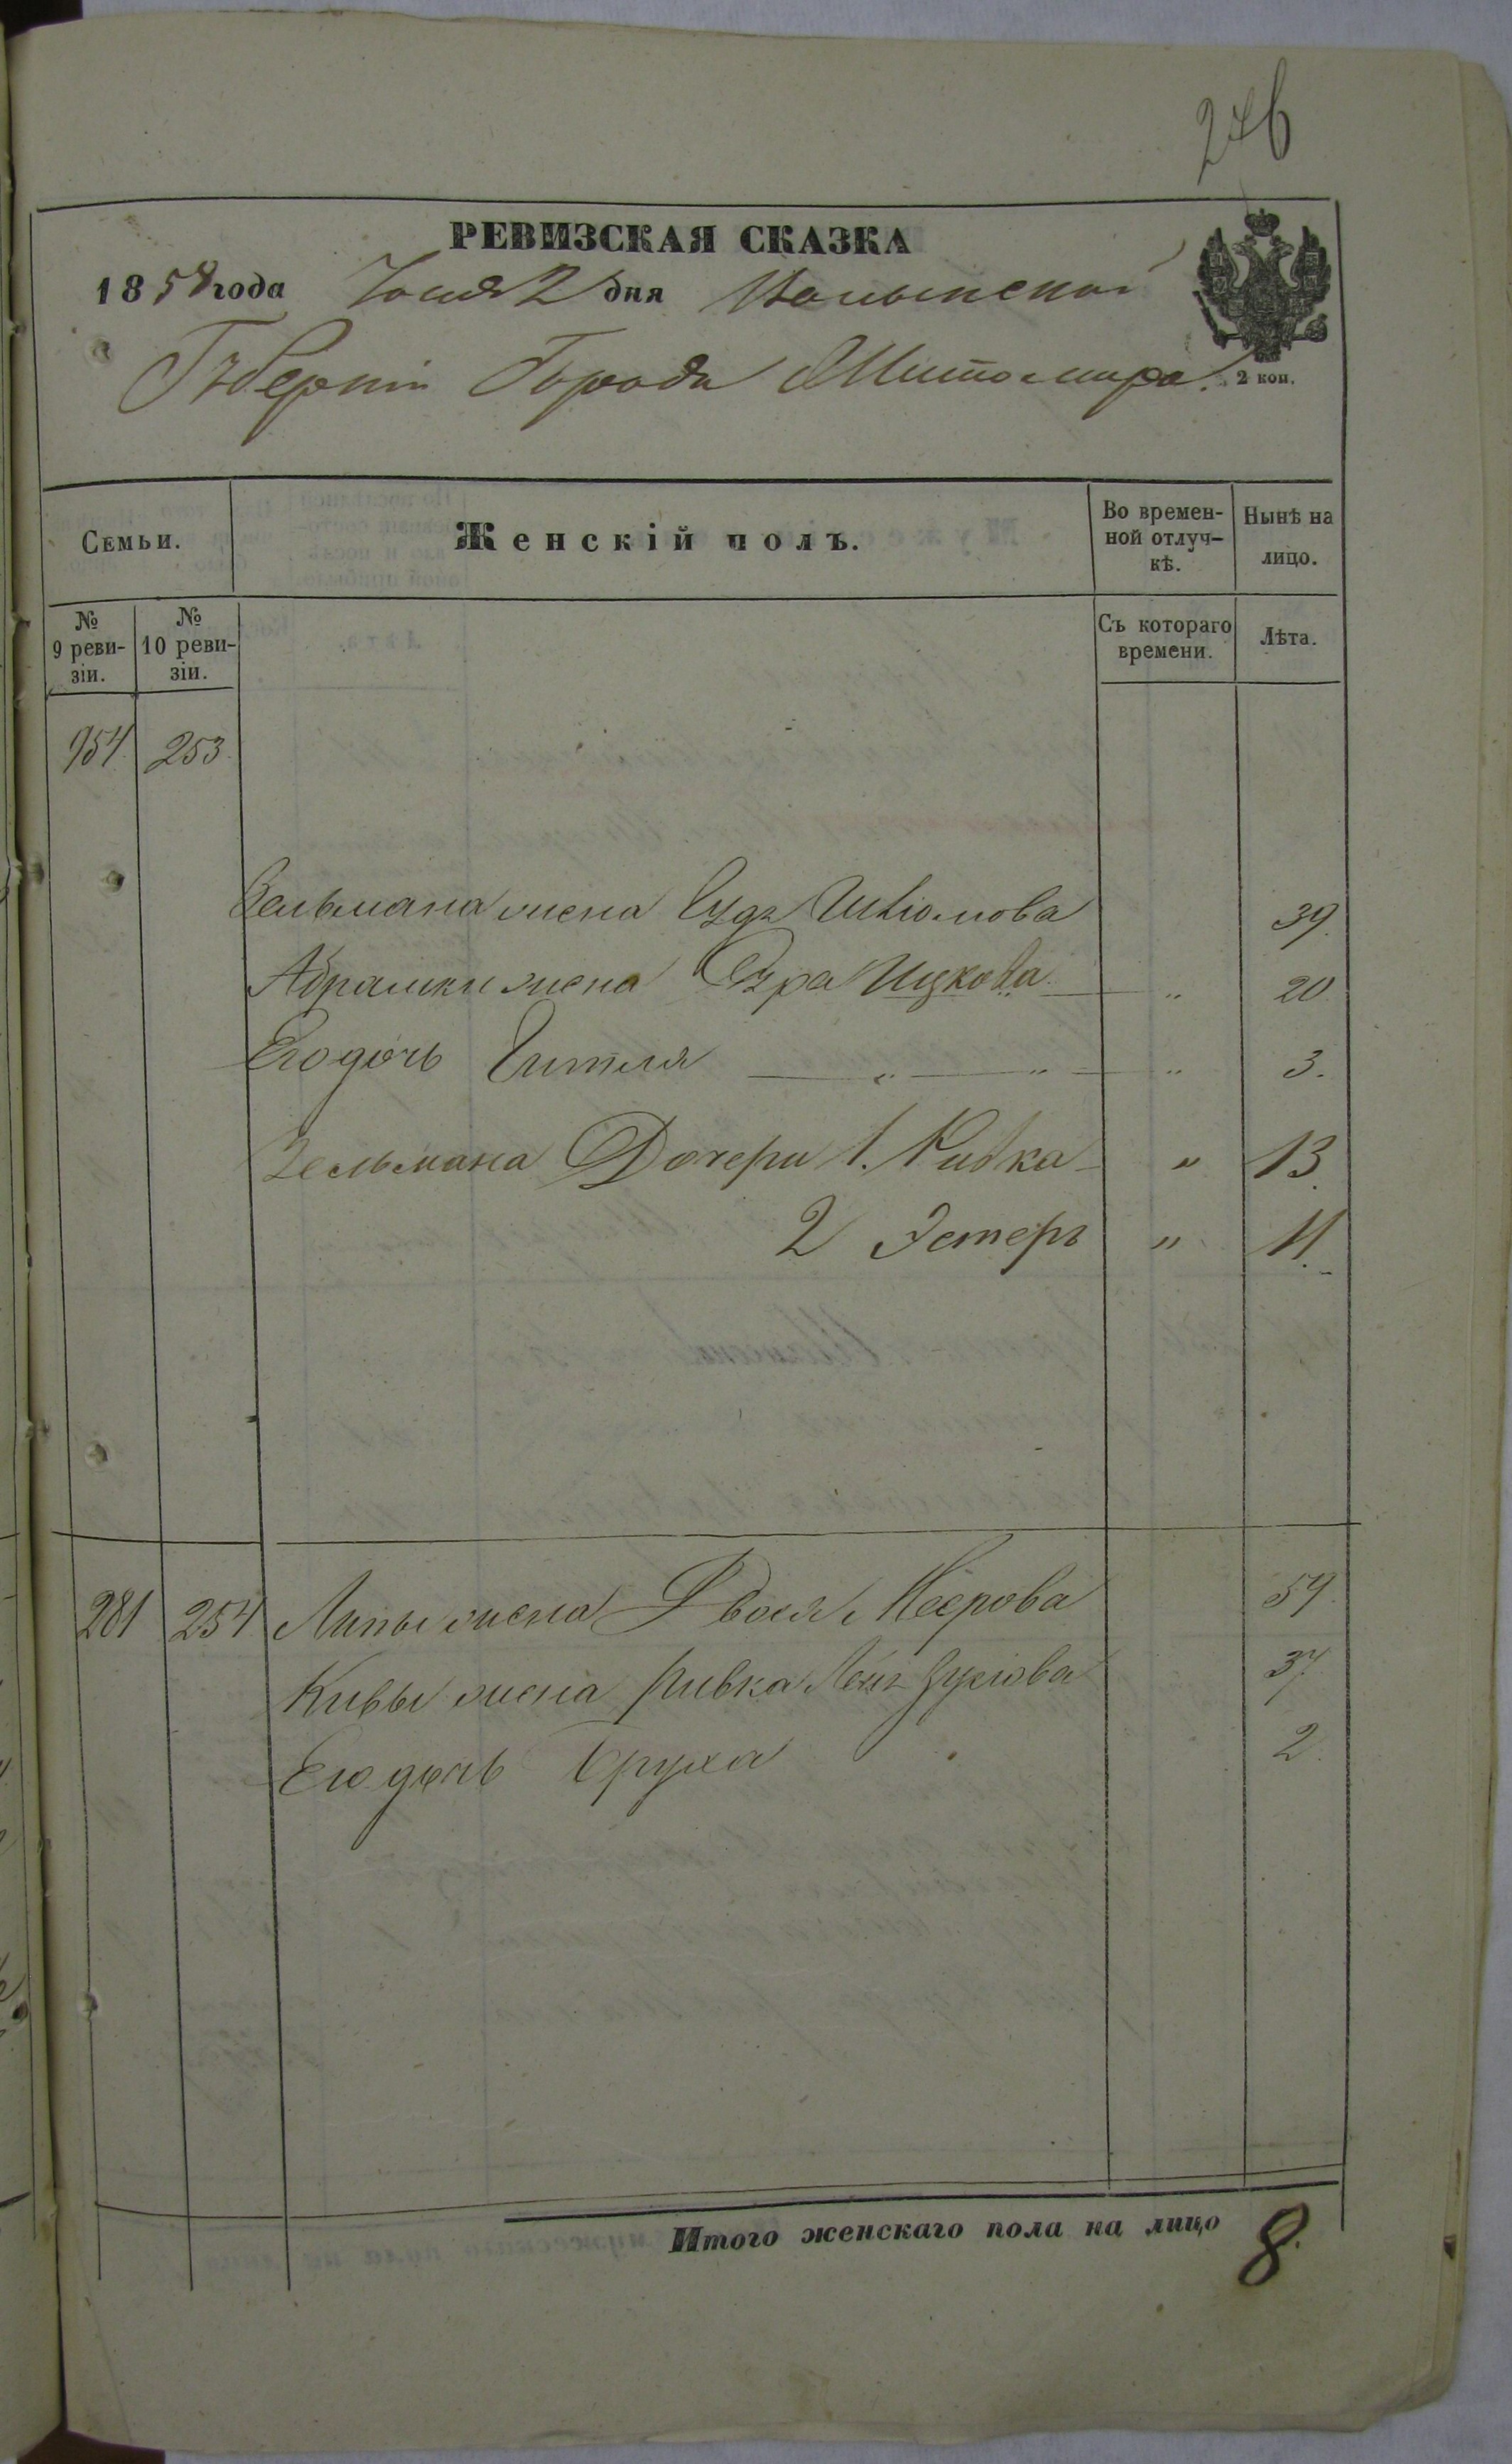 246
РЕВИЗСКАЯ СКАЗКА
1858 года Іюня 2 дня Волынской
Губерніи Города Житомира.
2 коп.
Семьи.
Женскій полъ.
Во времен-
ной отлуч-
кѣ.
Нынѣ на
лицо.
№
9 реви-
зіи.
№
10 реви-
зіи.
Съ котораго
времени.
Лѣта.
954 253
Зельмана жена Шліомова 39.
Абрамки жена Сура Ицкова " 20
Его дочь Гитля " " " 3.
Зельмана Дочери 1. Ривка " 13.
2 Эстеръ " 11.
281 254 Липы жена Двося Меерова 59.
Кивы жена Ривка Лея 37
Его дочь Бруха 2.
Итого женскаго пола на лицо 8.